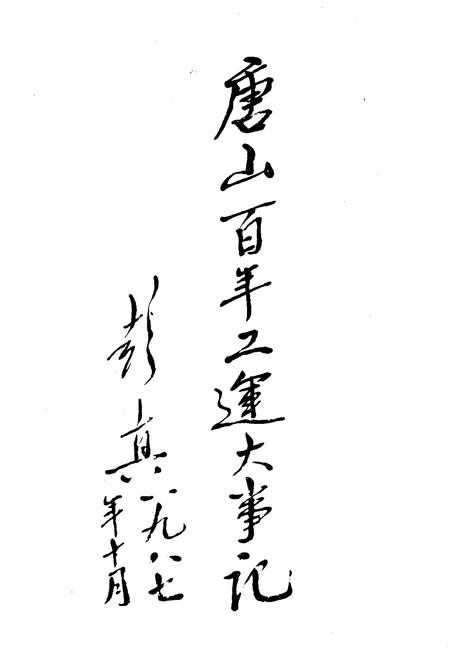 唐山百年工運大事记
彭真
一九八七
年十月